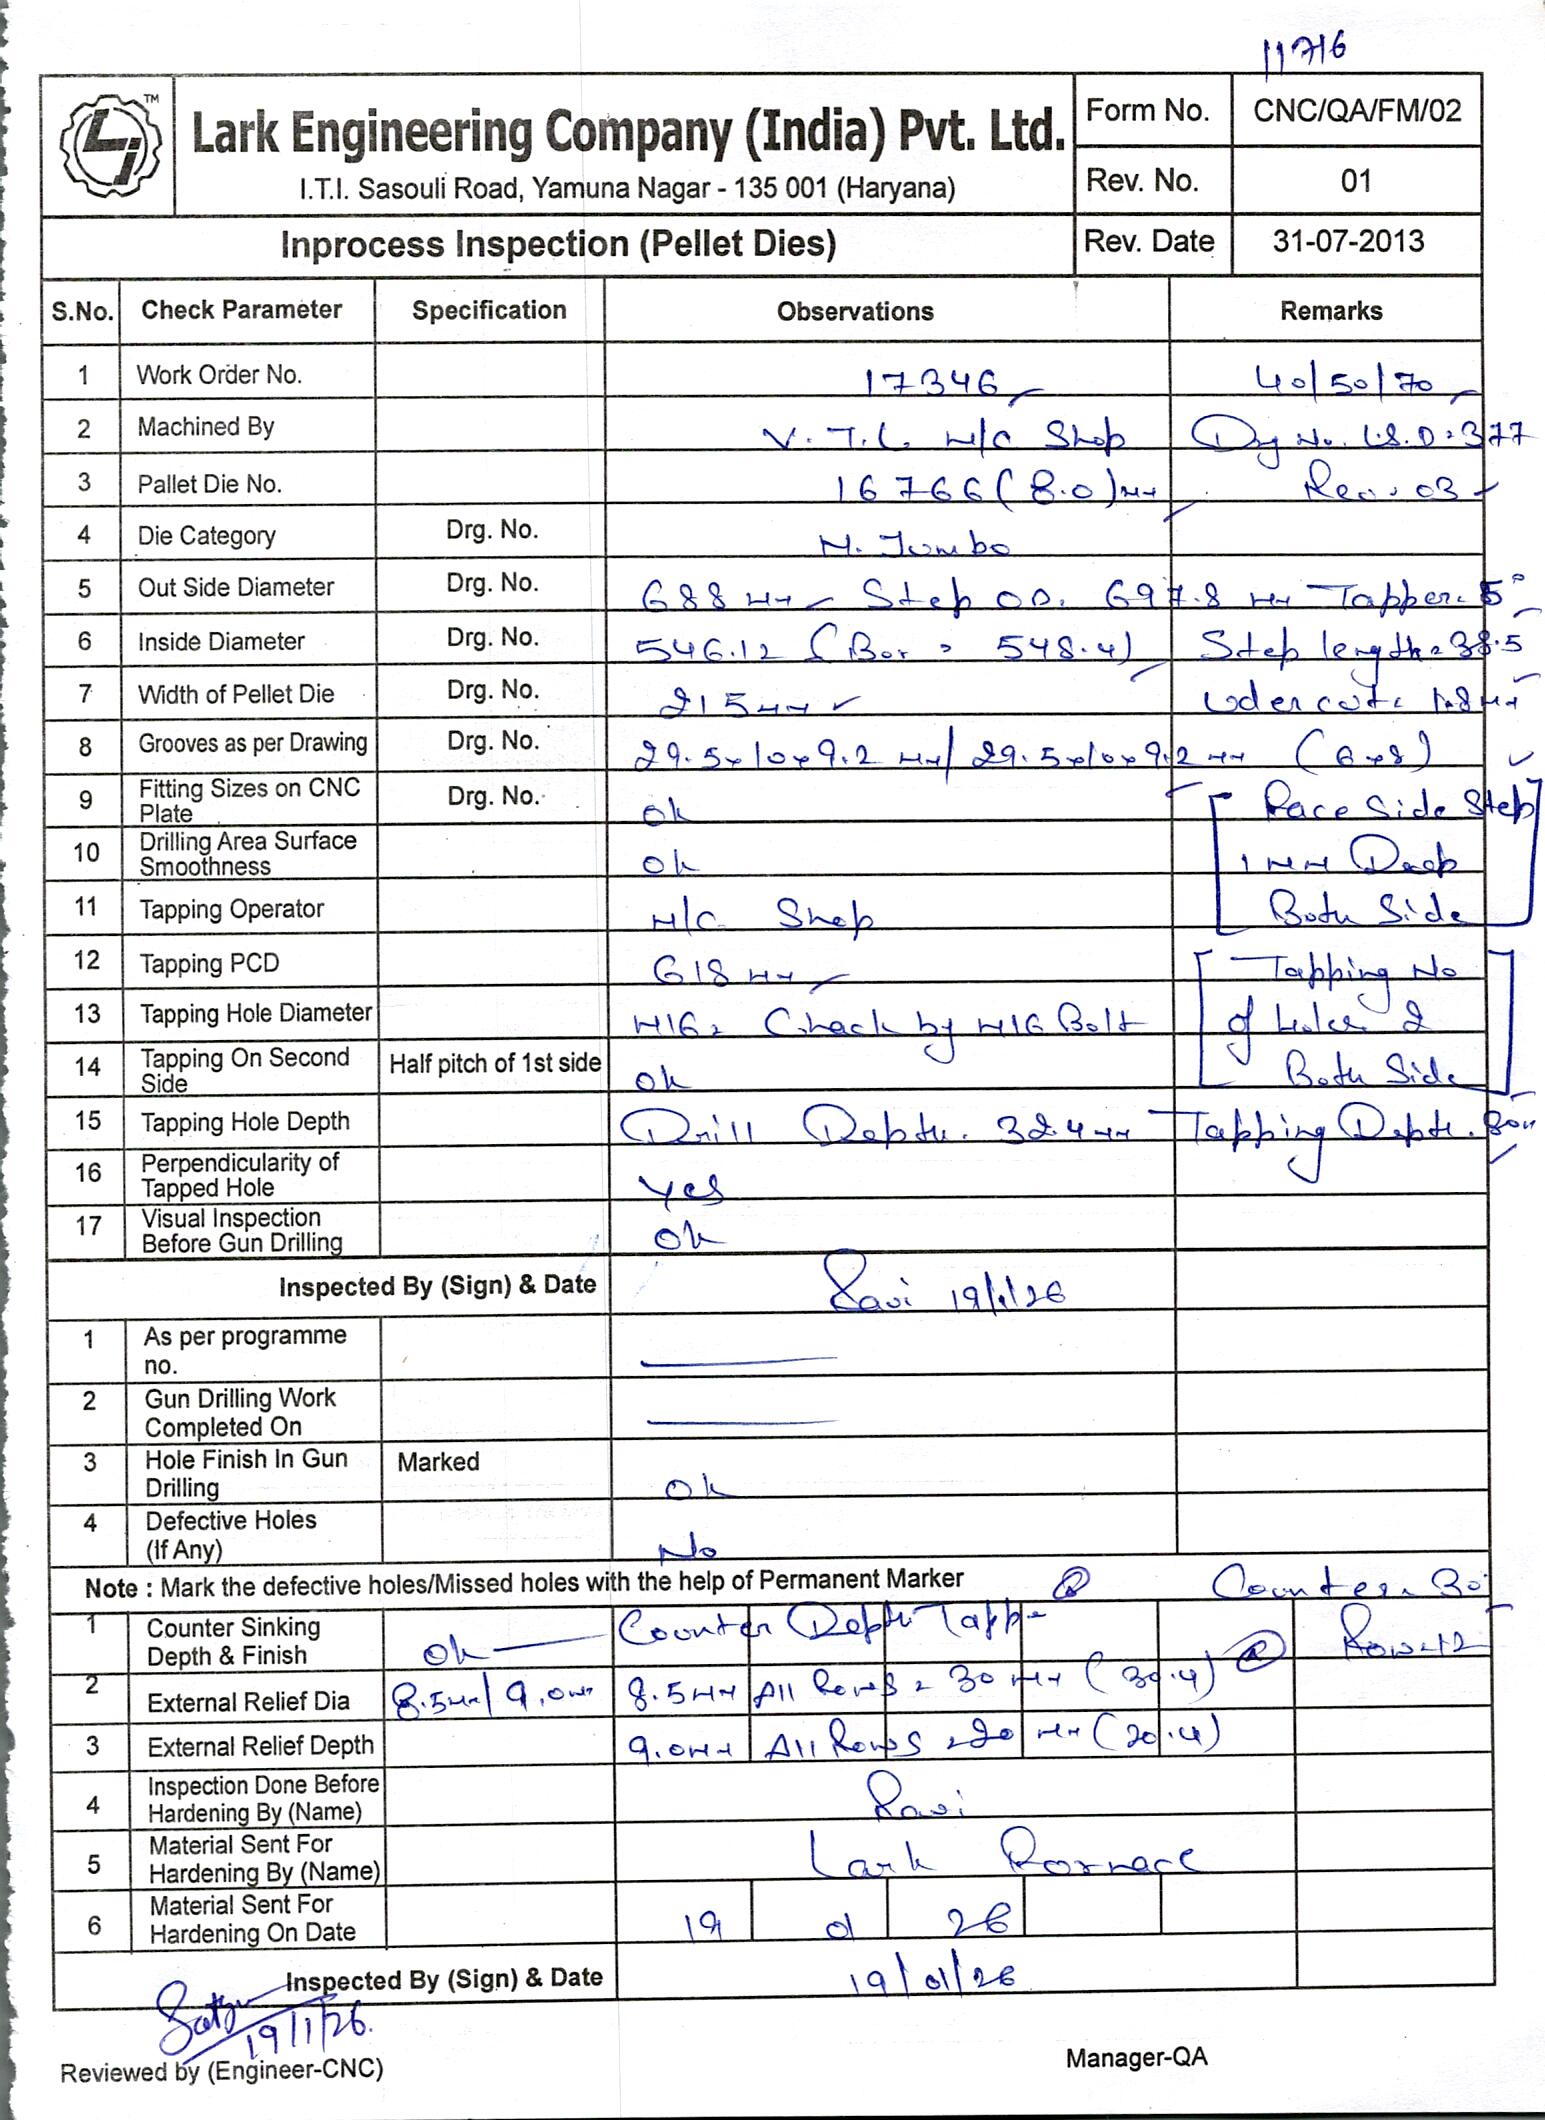 11716
TM
Lark Engineering Company (India) Pvt. Ltd.
I.T.I. Sasouli Road, Yamuna Nagar - 135 001 (Haryana)
Form No. CNC/QA/FM/02
Rev. No. 01
Inprocess Inspection (Pellet Dies)
Rev. Date 31-07-2013
S.No. Check Parameter Specification Observations Remarks
1 Work Order No. 17346 40/50/70
2 Machined By V.T.L M/C Shop Drg No. L.S.D. 377
3 Pallet Die No. 16766 (8.0) mm Rev. 03
4 Die Category Drg. No. M. Jumbo
5 Out Side Diameter Drg. No. 688 mm Step OD. 697.8 mm Tapper. 5°
6 Inside Diameter Drg. No. 546.12 (Bor = 548.4) Step length = 38.5
7 Width of Pellet Die Drg. No. 215 mm
8 Grooves as per Drawing Drg. No. 29.5x10x9.2 mm/ 29.5x10x9.2 mm (6x8)
9 Fitting Sizes on CNC Plate Drg. No. ok Face Side Step
10 Drilling Area Surface Smoothness ok 1 mm Deep
11 Tapping Operator M/C Shop Both Side
12 Tapping PCD 618 mm Tapping No
13 Tapping Hole Diameter M16 = Check by M16 Bolt of holes 2
14 Tapping On Second Side Half pitch of 1st side ok Both Side
15 Tapping Hole Depth Drill Depth. 32.4 mm Tapping Depth.
16 Perpendicularity of Tapped Hole Yes
17 Visual Inspection Before Gun Drilling ok
Inspected By (Sign) & Date Ravi 19/1/26
1 As per programme no.
2 Gun Drilling Work Completed On
3 Hole Finish In Gun Drilling Marked ok
4 Defective Holes (If Any) No
Note : Mark the defective holes/Missed holes with the help of Permanent Marker Counter. 30
1 Counter Sinking Depth & Finish ok Counter Depth Tapp
2 External Relief Dia 8.5mm/9.0mm 8.5mm All Rows = 30 mm (30.4)
3 External Relief Depth 9.0mm All Rows = 20 mm (20.4)
4 Inspection Done Before Hardening By (Name) Ravi
5 Material Sent For Hardening By (Name) Lark Fornace
6 Material Sent For Hardening On Date 19 01 26
Inspected By (Sign) & Date 19/01/26
19/1/26.
Reviewed by (Engineer-CNC)
Manager-QA